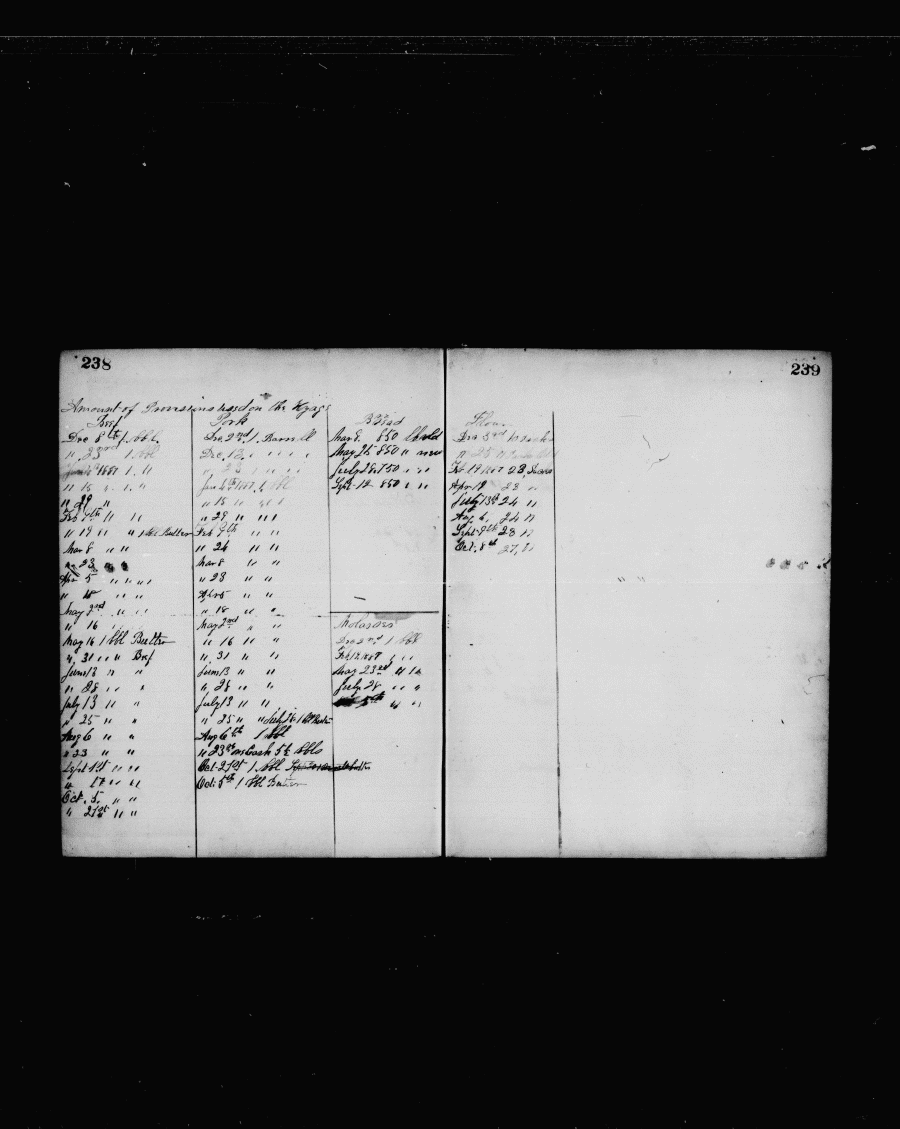 238
Amount of Provisions used on the Voyage
Beef
Dec 8th 1 bbl.
" 23rd 1 bbl
1887 1 "
" 15 " 1 "
" 29 "
Feb 7th " "
" 19 " " 1 bbl Butter
Mar 8 " "
" 23 " "
Apr 5 " " " "
" 18 " "
May 2nd " "
" 16 "
May 16 1 bbl Butter
" 31 " " Beef
June 13 " "
" 28 " "
July 13 " "
" 25 " "
Aug 6 " "
" 23 " "
Sept 1st " "
" 17 " "
Oct. 5 " "
" 21st " "
Pork
Dec 2nd 1 Barrell
Dec. 12 " " " "
" 23 " " "
Jan 4th 1887 1 bbl
" 15 " " "
" 29 " " "
Feb 9th " "
" 24 " "
Mar 8 " "
" 23 " "
Apr 5 " "
" 18 " "
May 2nd " "
" 16 " "
" 31 " "
June 13 " "
" 28 " "
July 13 " "
" 25 " " July 26 1 bbl
Aug 6th 1 bbl
" 23rd Cask 5½ bbls
Oct 21st 1 bbl
Oct. 5th 1 bbl Butter
Bread
Mar 8. 850
May 25 850 "
July 28 750 " "
Sept. 12 850 " "
Molasses
Dec 2nd 1 bbl
Feb 12 1887 " "
May 23rd " "
July 28 " "
5th " "
239
Flour
Dec 3rd 10 sacks
" 25 "
Feb 19 1887 23
Apr 12 23 "
July 13th 24 "
Aug 6, 24 "
Sept 9th 28 "
Oct. 8th 27 "